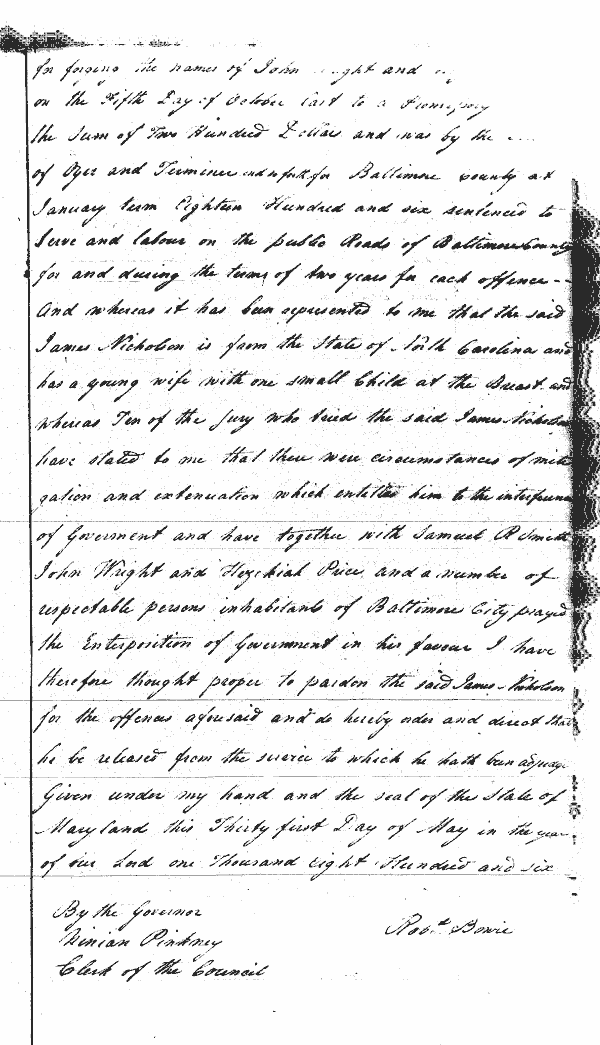 for forging the names of John and
on the Fifth Day of October last to a
the sum of Two Hundred Dollars and was by the
of Oyer and Terminer &c for Baltimore county at
January term Eighteen Hundred and six sentenced to
Serve and labour on the public Roads of Baltimore County
for and during the term of two years for each offence --
And whereas it has been represented to me that the said
James Nicholson is from the State of North Carolina and
has a young wife with one small Child at the Breast and
whereas Ten of the Jury who tried the said James Nicholson
have stated to me that there were circumstances of miti
gation and extenuation which entitled him to the interference
of Goverment and have together with Samuel R Smith
John Wright and Hezekiah Price and a number of
respectable persons inhabitants of Baltimore City prayed
the Enterposition of Government in his favour I have
therefore thought proper to pardon the said James Nicholson
for the offences aforesaid and do hereby order and direct that
he be released from the service to which he hath been
Given under my hand and the seal of the State of
Maryland this Thirty first Day of May in the year
of our Lord one Thousand eight Hundred and six
By the Governor
Ninian Pinkney
Clerk of the Council
Robt. Bowie